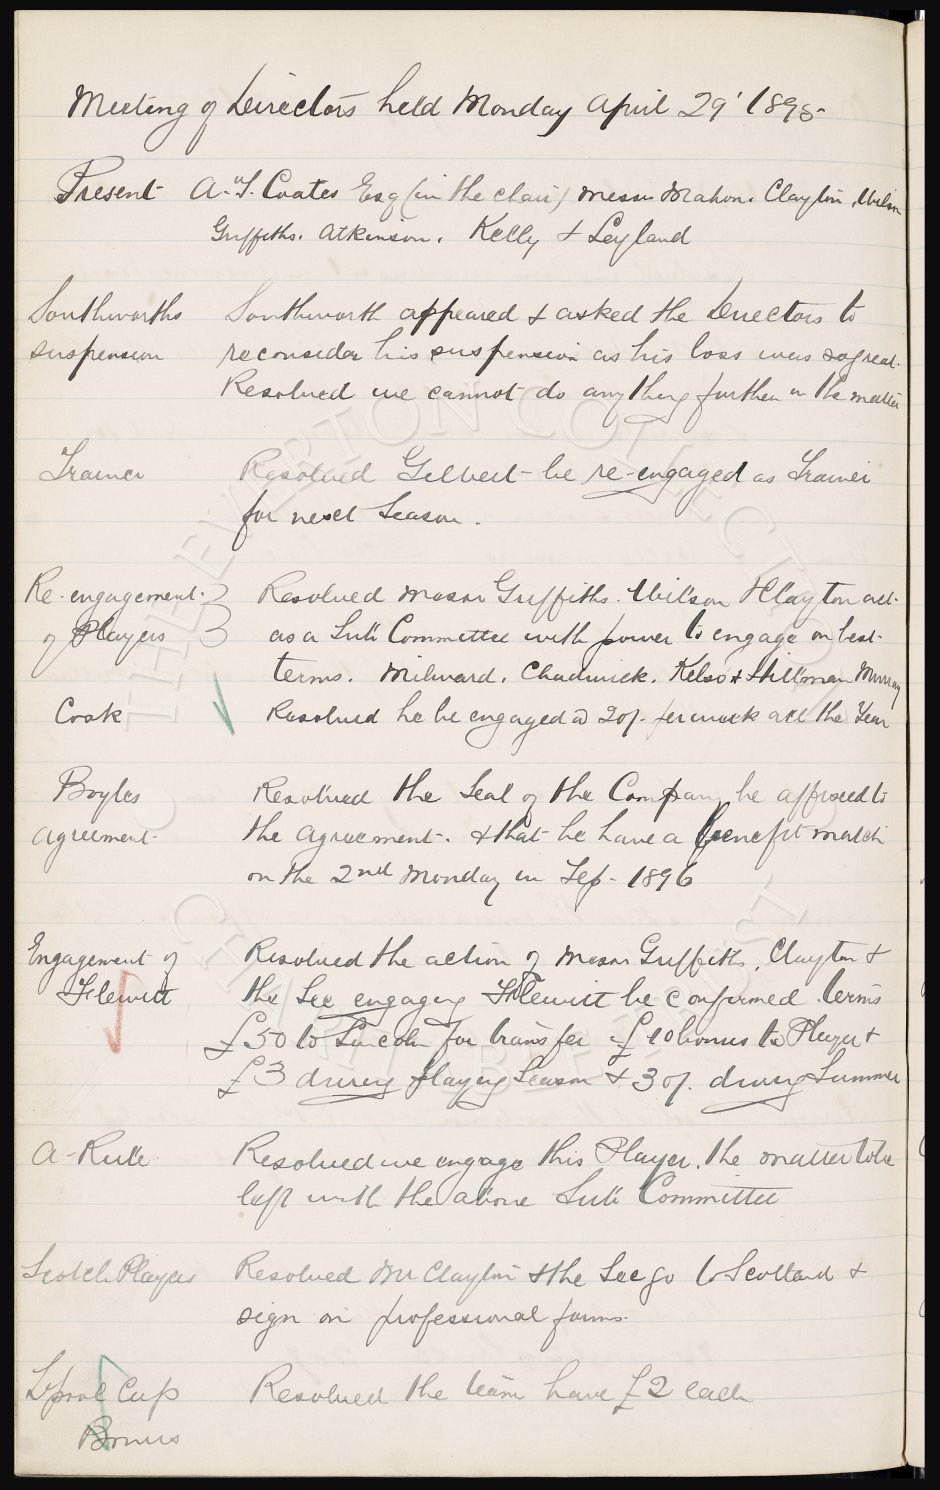 Meeting of Directors held Monday April 29' 1895
Present A. T. Coates Esq (in the chair) Messrs Mahon. Clayton, Wilson
Griffiths. Atkinson. Kelly & Leyland
Southworths suspension
Southworth appeared & asked the Directors to
reconsider his suspension as his loss was so great.
Resolved we cannot do anything further in the matter
Trainer
Resolved Gilbert be re-engaged as Trainer
for next Season.
Re-engagement of Players
Resolved Messrs Griffiths. Wilson & Clayton act
as a Sub Committee with power to engage on best
terms. Milward. Chadwick. Kelso & Hillman Murray
Cook
Resolved he be engaged @ 20/- per week all the Year
Boyles agreement
Resolved the Seal of the Company be affixed to
the agreement. & that he have a benefit match
on the 2nd Monday in Sep- 1896
Engagement of Flewitt
Resolved the action of Messrs Griffiths, Clayton &
the Sec engaging Flewitt be confirmed. terms
£50 to Lincoln for transfer £10 bonus to Player &
£3 during playing Season & 30/- during Summer
A-Rule
Resolved we engage this Player, the matter to be
left with the above Sub Committee
Scotch Players
Resolved Mr Clayton & the Sec go to Scotland &
sign on professional forms.
L'pool Cup Bonus
Resolved the team have £2 each
THE EVERTON COLLECTION
CHARITABLE TRUST